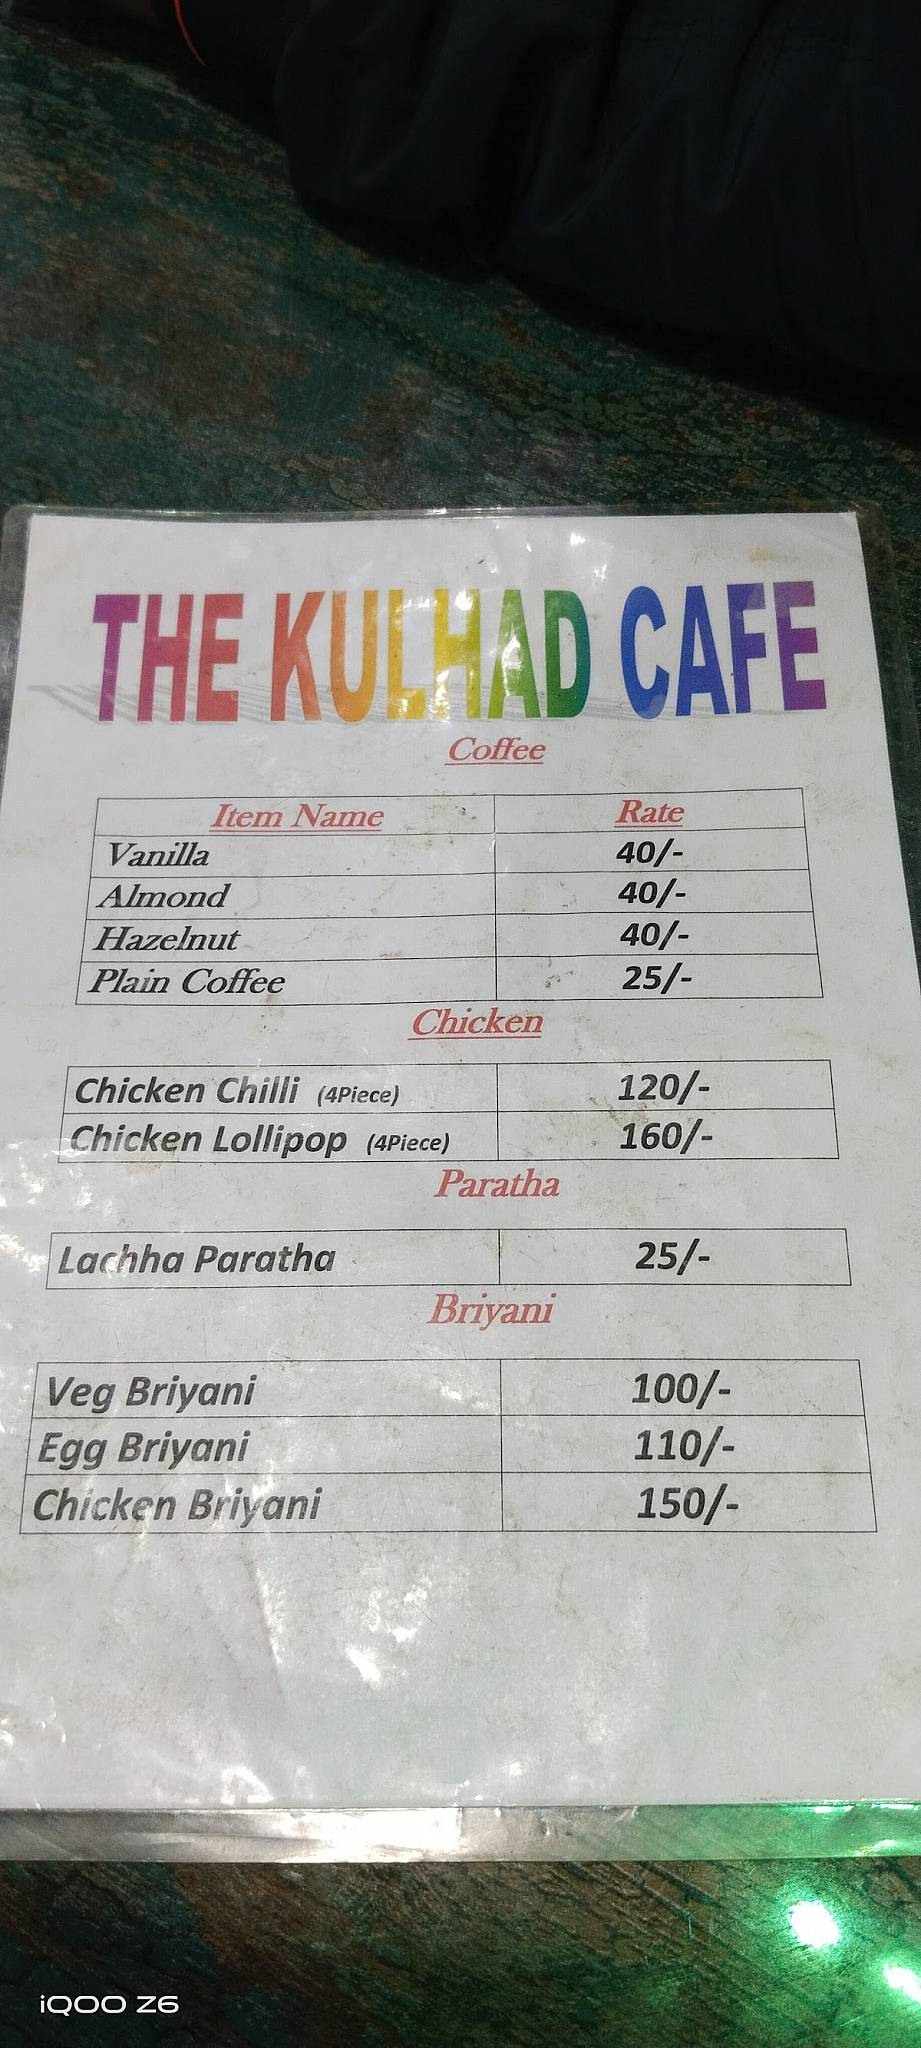 THE KULHAD CAFE
Coffee
Item Name Rate
Vanilla 40/-
Almond 40/-
Hazelnut 40/-
Plain Coffee 25/-
Chicken
Chicken Chilli (4Piece) 120/-
Chicken Lollipop (4Piece) 160/-
Paratha
Lachha Paratha 25/-
Briyani
Veg Briyani 100/-
Egg Briyani 110/-
Chicken Briyani 150/-
iQOO Z6